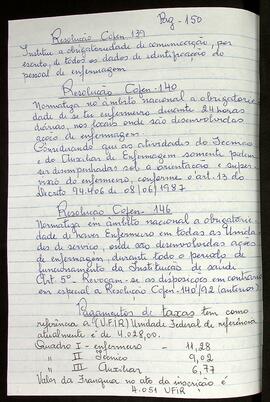 Pag - 150
Resolução Cofen 139
Institui a obrigatoriedade de comunicação, por
escrito, de todos os dados de identificação do
pessoal de enfermagem
Resolução Cofen - 140
Normatiza no âmbito nacional a obrigatorie
dade de se ter enfermeiro durante 24 horas
diárias, nos locais onde são desenvolvidas
ações de enfermagem.
Considerando que as atividades do Técnico
e do Auxiliar de Enfermagem somente podem
ser desempenhadas sob a orientação e super
visão do enfermeiro, conforme o art. 13 do
Decreto 94.406 de 08/06/1987
Resolução Cofen - 146
Normatiza em âmbito nacional a obrigatorie
dade de haver Enfermeiro em todas as Unida
des de serviço, onde são desenvolvidas ações
de enfermagem, durante todo o período de
funcionamento da Instituição de saúde
Art 5º - Revogam-se as disposições em contrário
em especial a Resolução Cofen - 140/92 (anterior)
Pagamentos de taxas tem como
referência a (UFIR) Unidade Federal de referência
atualmente é de 4.028,00.
Quadro I - enfermeiro - 11,28
" II Técnico 9,02
" III Auxiliar 6,77
Valor da Franquia no ato da inscrição é
4.051 UFIR